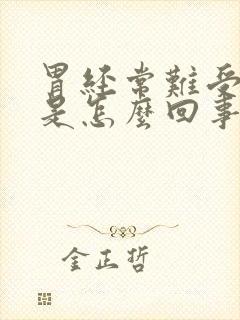 胃経常難受
是怎麼回事
金正哲